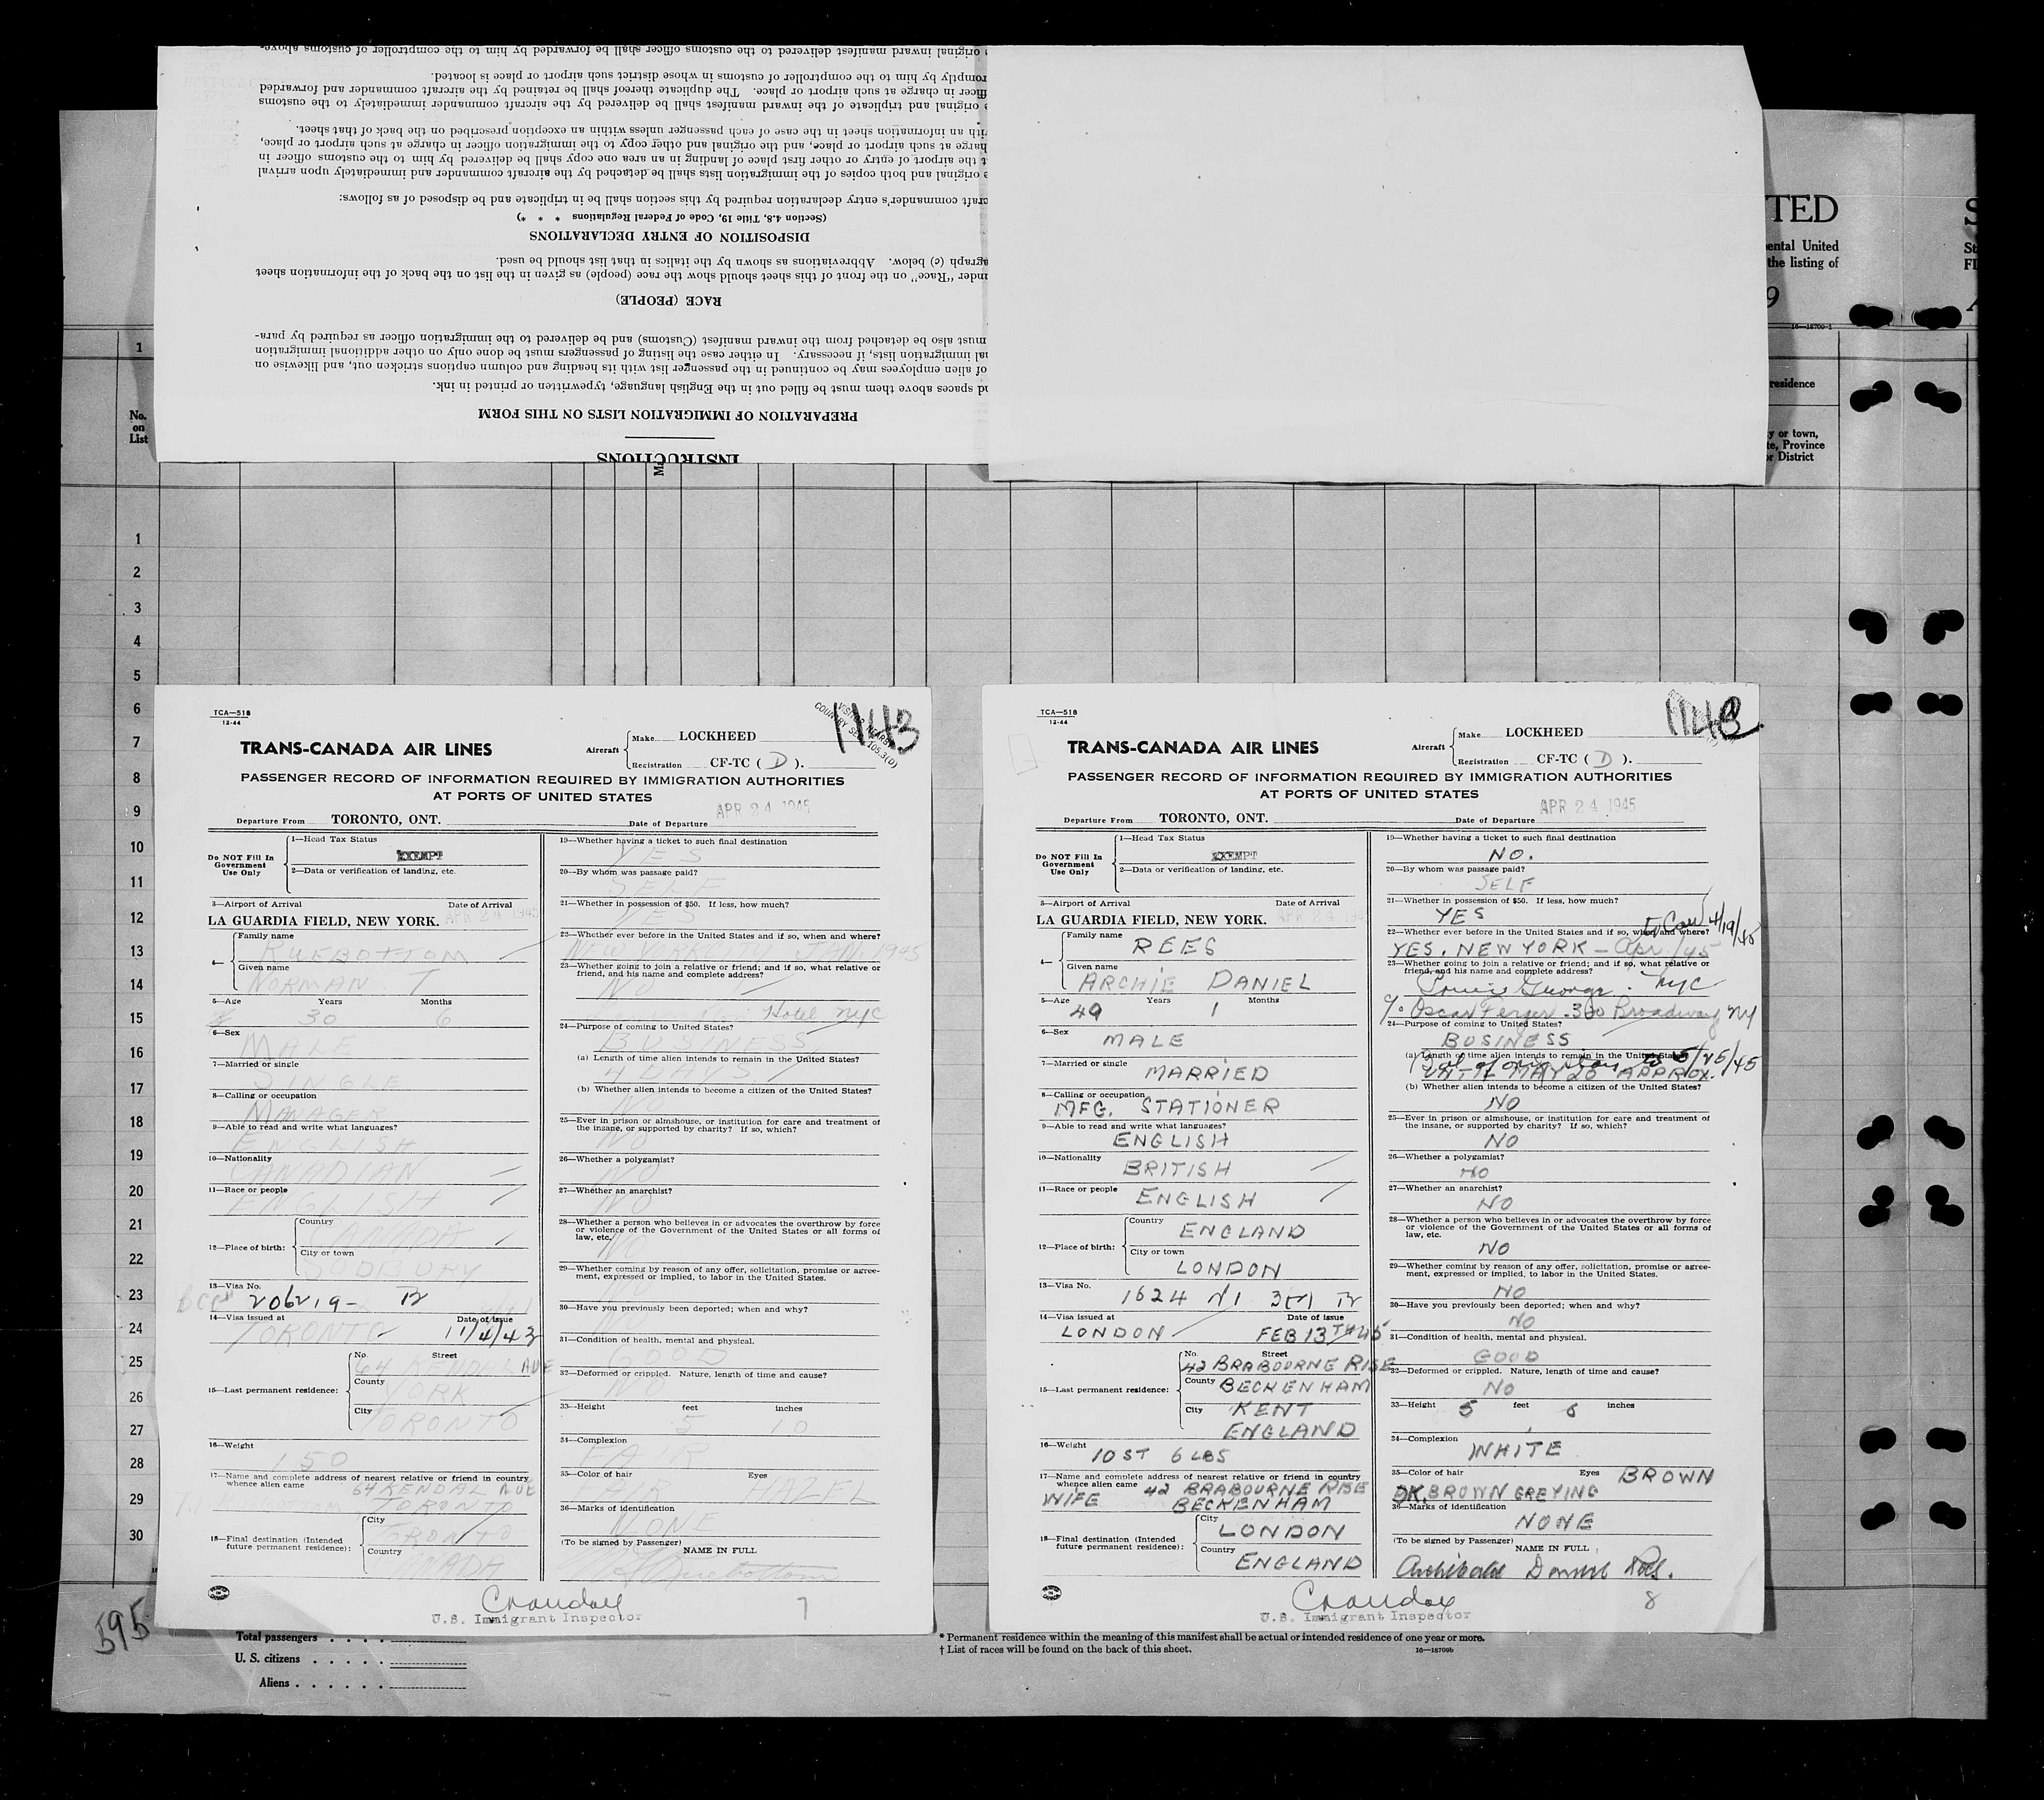 e original inward manifest delivered to the customs officer shall be forwarded by him to the comptroller of customs above-
romptly by him to the comptroller of customs in whose district such airport or place is located.
fficer in charge at such airport or place. The duplicate thereof shall be retained by the aircraft commander and forwarded
e original and triplicate of the inward manifest shall be delivered by the aircraft commander immediately to the customs
ith an information sheet in the case of each passenger unless within an exception prescribed on the back of that sheet.
harge at such airport or place, and the original and other copy to the immigration officer in charge at such airport or place,
t the airport of entry or other first place of landing in an area one copy shall be delivered by him to the customs officer in
e original and both copies of the immigration lists shall be detached by the aircraft commander and immediately upon arrival
craft commander's entry declaration required by this section shall be in triplicate and be disposed of as follows:
(Section 4.8, Title 19, Code of Federal Regulations * * *)
DISPOSITION OF ENTRY DECLARATIONS
agraph (c) below. Abbreviations as shown by the italics in that list should be used.
under "Race" on the front of this sheet should show the race (people) as given in the list on the back of the information sheet
RACE (PEOPLE)
must also be detached from the inward manifest (Customs) and be delivered to the immigration officer as required by para-
nal immigration lists, if necessary. In either case the listing of passengers must be done only on other additional immigration
of alien employees may be continued in the passenger list with its heading and column captions stricken out, and likewise on
nd spaces above them must be filled out in the English language, typewritten or printed in ink.
PREPARATION OF IMMIGRATION LISTS ON THIS FORM
INSTRUCTIONS
TED
ental United
the listing of
9
16—18700-1
residence
y or town,
te, Province
or District
S
St
FI
1
No.
on
List
1
2
3
4
5
6
7
8
9
10
11
12
13
14
15
16
17
18
19
20
21
22
23
24
25
26
27
28
29
30
TCA—518
12-44
1143
TRANS-CANADA AIR LINES
Aircraft
Make LOCKHEED
Registration CF-TC ( D ).
PASSENGER RECORD OF INFORMATION REQUIRED BY IMMIGRATION AUTHORITIES
AT PORTS OF UNITED STATES
APR 24 1945
Departure From TORONTO, ONT. Date of Departure
Do NOT Fill In Government Use Only
1—Head Tax Status
EXEMPT
2—Data or verification of landing, etc.
3—Airport of Arrival Date of Arrival
LA GUARDIA FIELD, NEW YORK. APR 24 1945
4— Family name
RUEBOTTOM
Given name
NORMAN T
5—Age Years Months
30 6
6—Sex
MALE
7—Married or single
SINGLE
8—Calling or occupation
MANAGER
9—Able to read and write what languages?
ENGLISH
10—Nationality
CANADIAN
11—Race or people
ENGLISH
12—Place of birth:
Country
CANADA
City or town
SUDBURY
13—Visa No.
206219-
14—Visa issued at Date of issue
TORONTO 11/4/43
15—Last permanent residence:
No. Street
64 KENDAL AVE
County
YORK
City
TORONTO
16—Weight
150
17—Name and complete address of nearest relative or friend in country
whence alien came 64 KENDAL AVE
TORONTO
18—Final destination (Intended future permanent residence):
City
TORONTO
Country
CANADA
19—Whether having a ticket to such final destination
YES
20—By whom was passage paid?
SELF
21—Whether in possession of $50. If less, how much?
YES
22—Whether ever before in the United States and if so, when and where?
NEW YORK JAN 1945
23—Whether going to join a relative or friend; and if so, what relative or
friend, and his name and complete address?
NO
Hotel NYC
24—Purpose of coming to United States?
BUSINESS
(a) Length of time alien intends to remain in the United States?
4 DAYS
(b) Whether alien intends to become a citizen of the United States?
NO
25—Ever in prison or almshouse, or institution for care and treatment of
the insane, or supported by charity? If so, which?
NO
26—Whether a polygamist?
NO
27—Whether an anarchist?
NO
28—Whether a person who believes in or advocates the overthrow by force
or violence of the Government of the United States or all forms of
law, etc.
NO
29—Whether coming by reason of any offer, solicitation, promise or agree-
ment, expressed or implied, to labor in the United States.
NO
30—Have you previously been deported; when and why?
NO
31—Condition of health, mental and physical.
GOOD
32—Deformed or crippled. Nature, length of time and cause?
NO
33—Height feet inches
5 10
34—Complexion
FAIR
35—Color of hair Eyes
FAIR HAZEL
36—Marks of identification
NONE
(To be signed by Passenger)
NAME IN FULL
U.S. Immigrant Inspector
7
TCA—518
12-44
TRANS-CANADA AIR LINES
Aircraft
Make LOCKHEED
Registration CF-TC ( D ).
PASSENGER RECORD OF INFORMATION REQUIRED BY IMMIGRATION AUTHORITIES
AT PORTS OF UNITED STATES
APR 24 1945
Departure From TORONTO, ONT. Date of Departure
Do NOT Fill In Government Use Only
1—Head Tax Status
EXEMPT
2—Data or verification of landing, etc.
3—Airport of Arrival Date of Arrival
LA GUARDIA FIELD, NEW YORK. APR 24 194
4— Family name
REES
Given name
ARCHIE DANIEL
5—Age Years Months
49 1
6—Sex
MALE
7—Married or single
MARRIED
8—Calling or occupation
MFG. STATIONER
9—Able to read and write what languages?
ENGLISH
10—Nationality
BRITISH
11—Race or people
ENGLISH
12—Place of birth:
Country
ENGLAND
City or town
LONDON
13—Visa No.
1624
14—Visa issued at Date of issue
LONDON FEB 13TH 45
15—Last permanent residence:
No. Street
42 BRABOURNE RISE
County BECKENHAM
City KENT
ENGLAND
16—Weight
10 ST 6 LBS
17—Name and complete address of nearest relative or friend in country
whence alien came 42 BRABOURNE RISE
WIFE BECKENHAM
18—Final destination (Intended future permanent residence):
City
LONDON
Country
ENGLAND
19—Whether having a ticket to such final destination
NO.
20—By whom was passage paid?
SELF
21—Whether in possession of $50. If less, how much?
YES
4/19/45
22—Whether ever before in the United States and if so, when and where?
YES. NEW YORK - Apr/45
23—Whether going to join a relative or friend; and if so, what relative or
friend, and his name and complete address?
NYC
c/o Oscar 300 Broadway NY
24—Purpose of coming to United States?
BUSINESS
(a) Length of time alien intends to remain in the United States?
to 5/25/45
UNTIL MAY 20 APPROX.
(b) Whether alien intends to become a citizen of the United States?
NO
25—Ever in prison or almshouse, or institution for care and treatment of
the insane, or supported by charity? If so, which?
NO
26—Whether a polygamist?
NO
27—Whether an anarchist?
NO
28—Whether a person who believes in or advocates the overthrow by force
or violence of the Government of the United States or all forms of
law, etc.
NO
29—Whether coming by reason of any offer, solicitation, promise or agree-
ment, expressed or implied, to labor in the United States.
NO
30—Have you previously been deported; when and why?
NO
31—Condition of health, mental and physical.
GOOD
32—Deformed or crippled. Nature, length of time and cause?
NO
33—Height 5 feet 6 inches
34—Complexion
WHITE
35—Color of hair Eyes BROWN
DK. BROWN GREYING
36—Marks of identification
NONE
(To be signed by Passenger)
NAME IN FULL
Archibald Daniel Rees.
U.S. Immigrant Inspector
8
595
Total passengers . . . .
U. S. citizens . . . . .
Aliens . . . . . .
* Permanent residence within the meaning of this manifest shall be actual or intended residence of one year or more.
† List of races will be found on the back of this sheet.
16—18700b